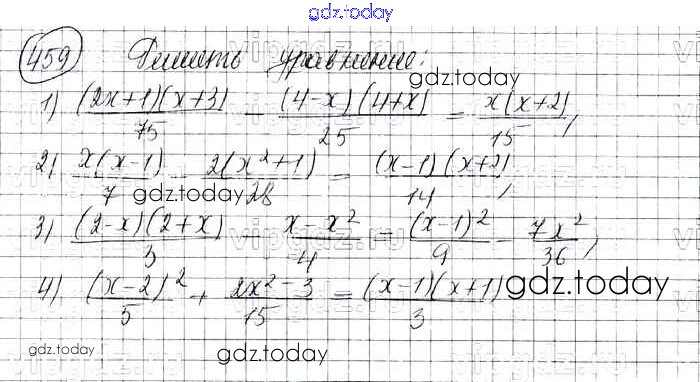 gdz.today
459 Решить уравнение:
gdz.today
1) \frac{(2x+1)(x+3)}{75} - \frac{(4-x)(4+x)}{25} = \frac{x(x+2)}{15},
2) \frac{x(x-1)}{7} - \frac{2(x^2+1)}{28} = \frac{(x-1)(x+2)}{14},
gdz.today
3) \frac{(2-x)(2+x)}{3} \frac{x-x^2}{4} = \frac{(x-1)^2}{9} - \frac{7x^2}{36},
4) \frac{(x-2)^2}{5} + \frac{2x^2-3}{15} = \frac{(x-1)(x+1)}{3}
gdz.today
gdz.today
gdz.today